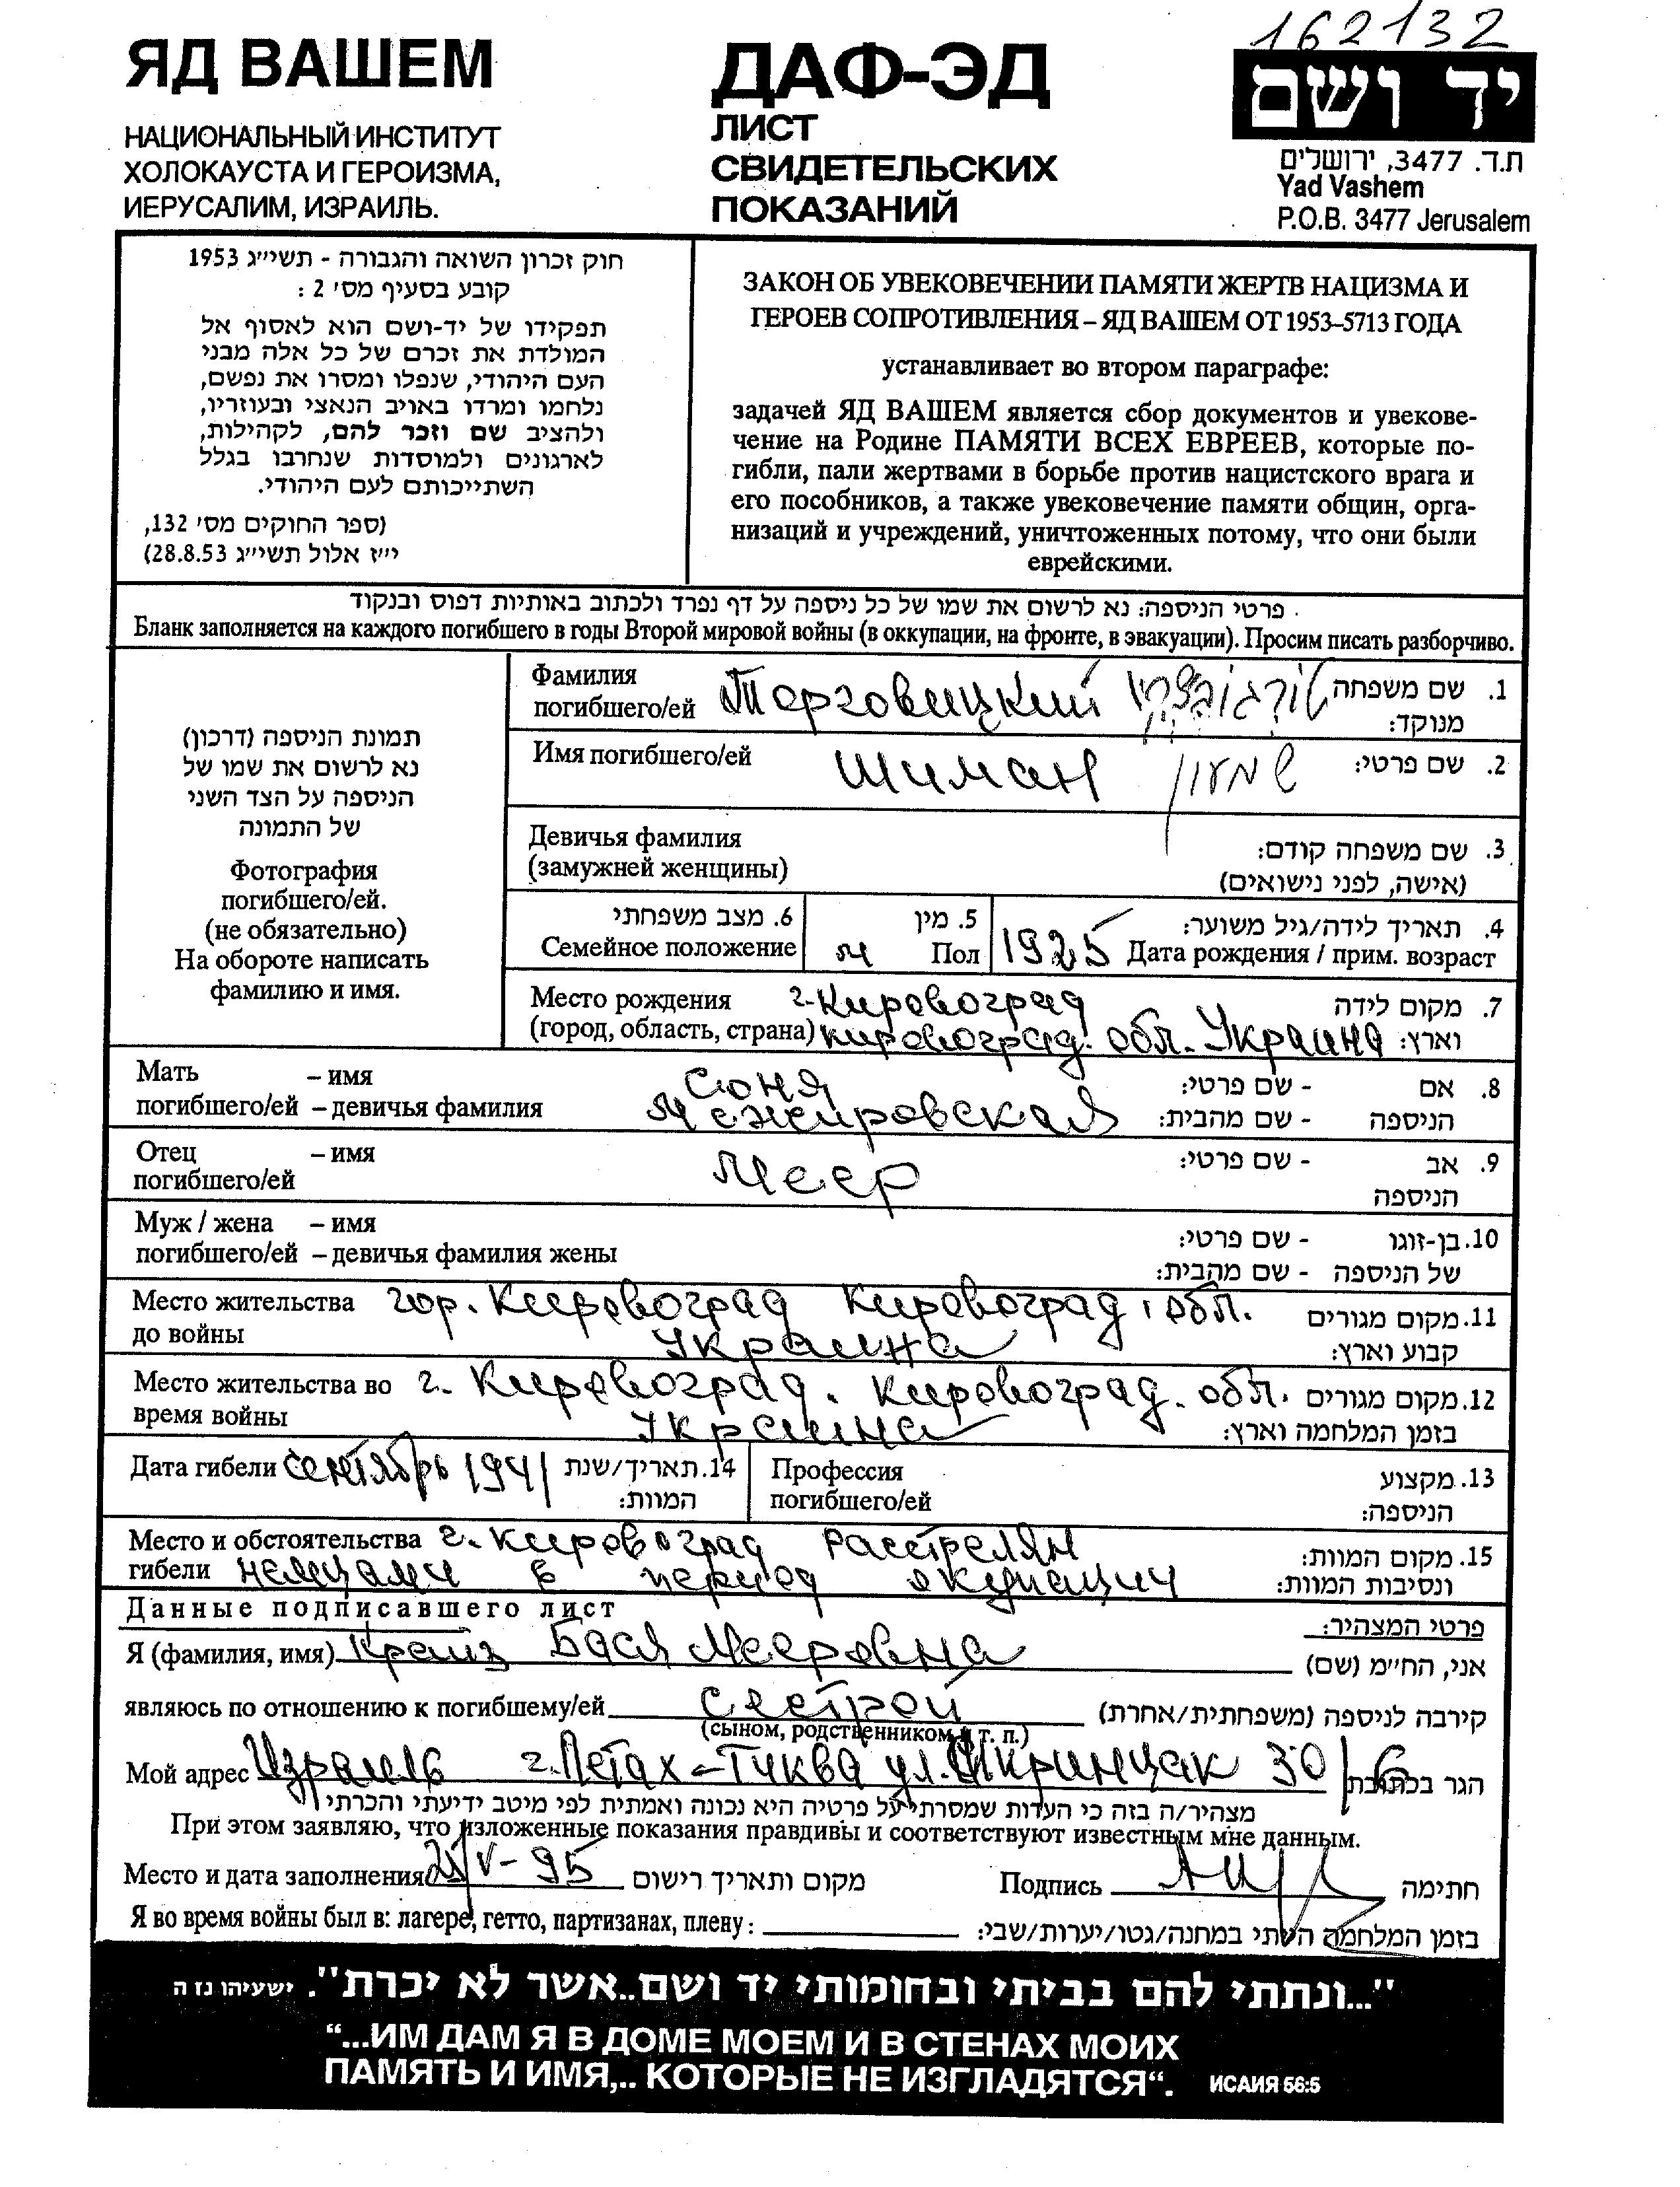 162132
ЯД ВАШЕМ
НАЦИОНАЛЬНЫЙ ИНСТИТУТ
ХОЛОКАУСТА И ГЕРОИЗМА,
ИЕРУСАЛИМ, ИЗРАИЛЬ.
ДАФ-ЭД
ЛИСТ
СВИДЕТЕЛЬСКИХ
ПОКАЗАНИЙ
יד ושם
ת.ד. 3477, ירושלים
Yad Vashem
P.O.B. 3477 Jerusalem
חוק זכרון השואה והגבורה - תשי״ג 1953
קובע בסעיף מס׳ 2 :
תפקידו של יד-ושם הוא לאסוף אל
המולדת את זכרם של כל אלה מבני
העם היהודי, שנפלו ומסרו את נפשם,
נלחמו ומרדו באויב הנאצי ובעוזריו,
ולהציב שם וזכר להם, לקהילות,
לארגונים ולמוסדות שנחרבו בגלל
השתייכותם לעם היהודי.
(ספר החוקים מס׳ 132,
י״ז אלול תשי״ג 28.8.53)
ЗАКОН ОБ УВЕКОВЕЧЕНИИ ПАМЯТИ ЖЕРТВ НАЦИЗМА И
ГЕРОЕВ СОПРОТИВЛЕНИЯ – ЯД ВАШЕМ ОТ 1953–5713 ГОДА
устанавливает во втором параграфе:
задачей ЯД ВАШЕМ является сбор документов и увекове-
чение на Родине ПАМЯТИ ВСЕХ ЕВРЕЕВ, которые по-
гибли, пали жертвами в борьбе против нацистского врага и
его пособников, а также увековечение памяти общин, орга-
низаций и учреждений, уничтоженных потому, что они были
еврейскими.
פרטי הניספה: נא לרשום את שמו של כל ניספה על דף נפרד ולכתוב באותיות דפוס ובנקוד .
Бланк заполняется на каждого погибшего в годы Второй мировой войны (в оккупации, на фронте, в эвакуации). Просим писать разборчиво.
תמונת הניספה (דרכון)
נא לרשום את שמו של
הניספה על הצד השני
של התמונה
Фотография
погибшего/ей.
(не обязательно)
На обороте написать
фамилию и имя.
Фамилия
погибшего/ей Торговицкий טורגוביצקי
1. שם משפחה
מנוקד:
Имя погибшего/ей Шиман שמעון 2. שם פרטי:
Девичья фамилия
(замужней женщины)
3. שם משפחה קודם:
(אישה, לפני נישואים)
6. מצב משפחתי
Семейное положение
5. מין
м Пол
4. תאריך לידה/גיל משוער:
1925 Дата рождения / прим. возраст
Место рождения г. Кировоград 7. מקום לידה
(город, область, страна) Кировоград. обл. Украина וארץ:
Мать – имя Сюня 8. אם - שם פרטי:
погибшего/ей – девичья фамилия Межировская הניספה - שם מהבית:
Отец – имя Меер 9. אב - שם פרטי:
погибшего/ей הניספה
Муж / жена – имя 10. בן-זוגו - שם פרטי:
погибшего/ей – девичья фамилия жены של הניספה - שם מהבית:
Место жительства гор. Кировоград Кировоград. обл. 11. מקום מגורים
до войны Украина קבוע וארץ:
Место жительства во г. Кировоград. Кировоград. обл. 12. מקום מגורים
время войны Украина בזמן המלחמה וארץ:
Дата гибели сентябрь 1941 14. תאריך/שנת
המוות:
Профессия 13. מקצוע
погибшего/ей הניספה:
Место и обстоятельства г. Кировоград расстрелян 15. מקום המוות:
гибели немцами в период окупации ונסיבות המוות:
Данные подписавшего лист פרטי המצהיר:
Я (фамилия, имя) Креиз Бася Мееровна אני, הח״מ (שם)
являюсь по отношению к погибшему/ей сестрой קירבה לניספה (משפחתית/אחרת)
(сыном, родственником и т. п.)
Мой адрес Израиль г. Петах-Тиква ул. Шпринцак 30/6 הגר בכתובת
מצהיר/ה בזה כי העדות שמסרתי על פרטיה היא נכונה ואמתית לפי מיטב ידיעתי והכרתי
При этом заявляю, что изложенные показания правдивы и соответствуют известным мне данным.
Место и дата заполнения V-95 מקום ותאריך רישום Подпись חתימה
Я во время войны был в: лагере, гетто, партизанах, плену: בזמן המלחמה הייתי במחנה/גטו/יערות/שבי:
"...ונתתי להם בביתי ובחומותי יד ושם..אשר לא יכרת". ישעיהו נז ה
“...ИМ ДАМ Я В ДОМЕ МОЕМ И В СТЕНАХ МОИХ
ПАМЯТЬ И ИМЯ,.. КОТОРЫЕ НЕ ИЗГЛАДЯТСЯ“. ИСАИЯ 56:5